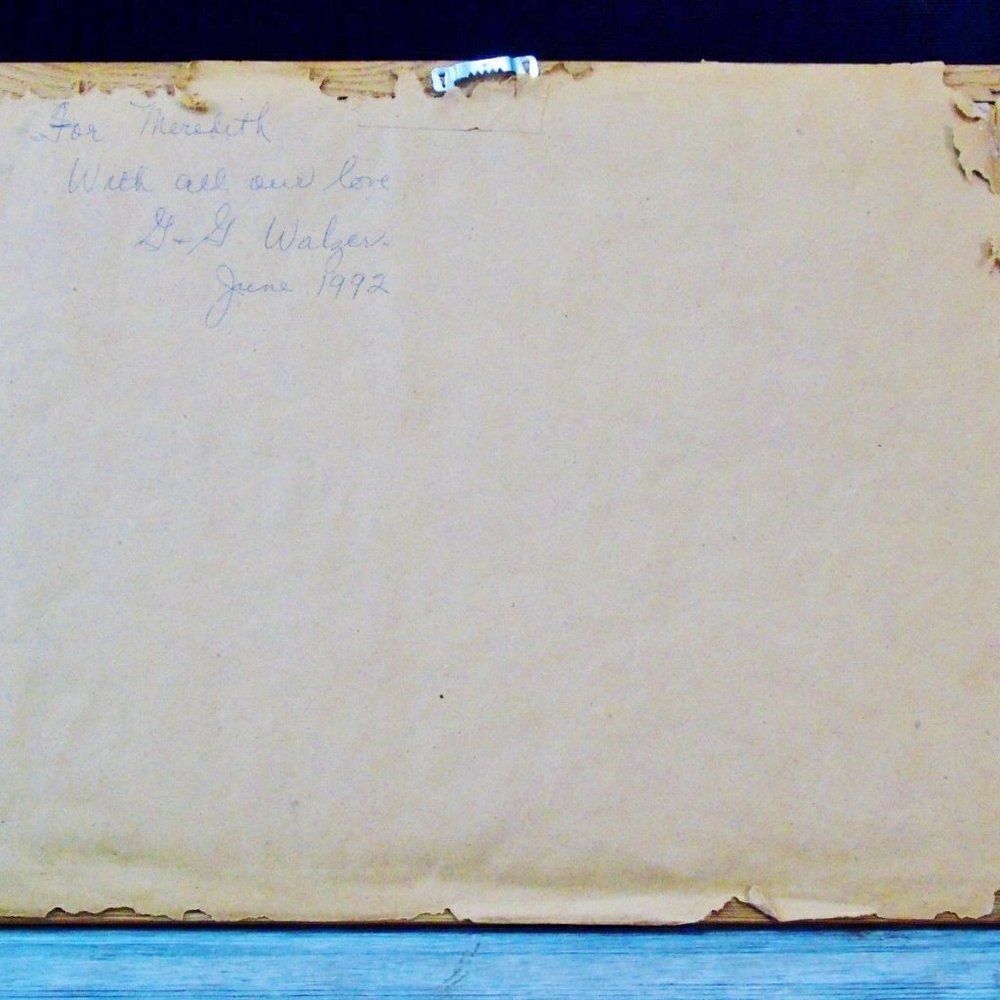 For Meredith
With all our love
G-G Walzer
June 1992